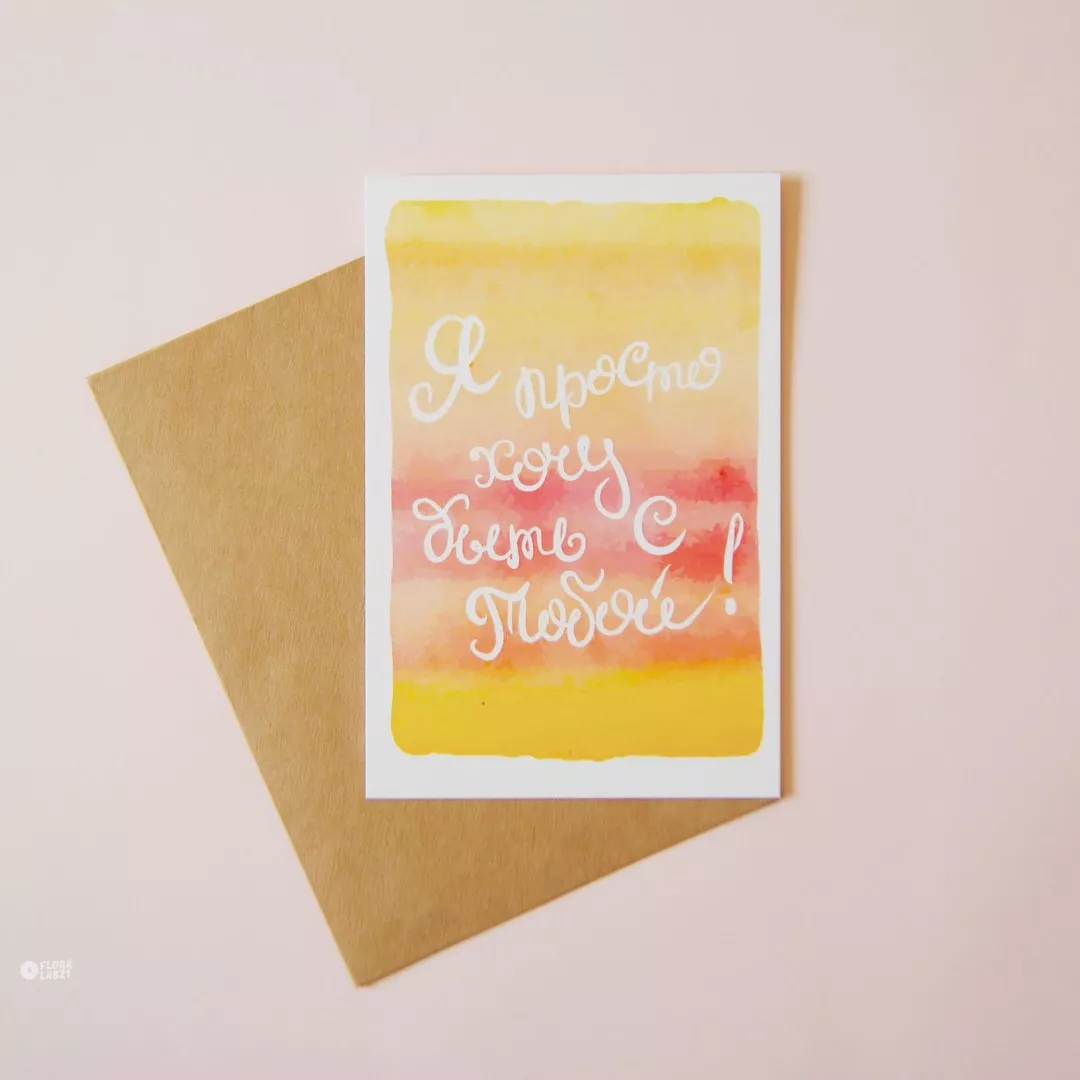 Я просто
хочу
быть с
Тобой!
FLORA
LAB21